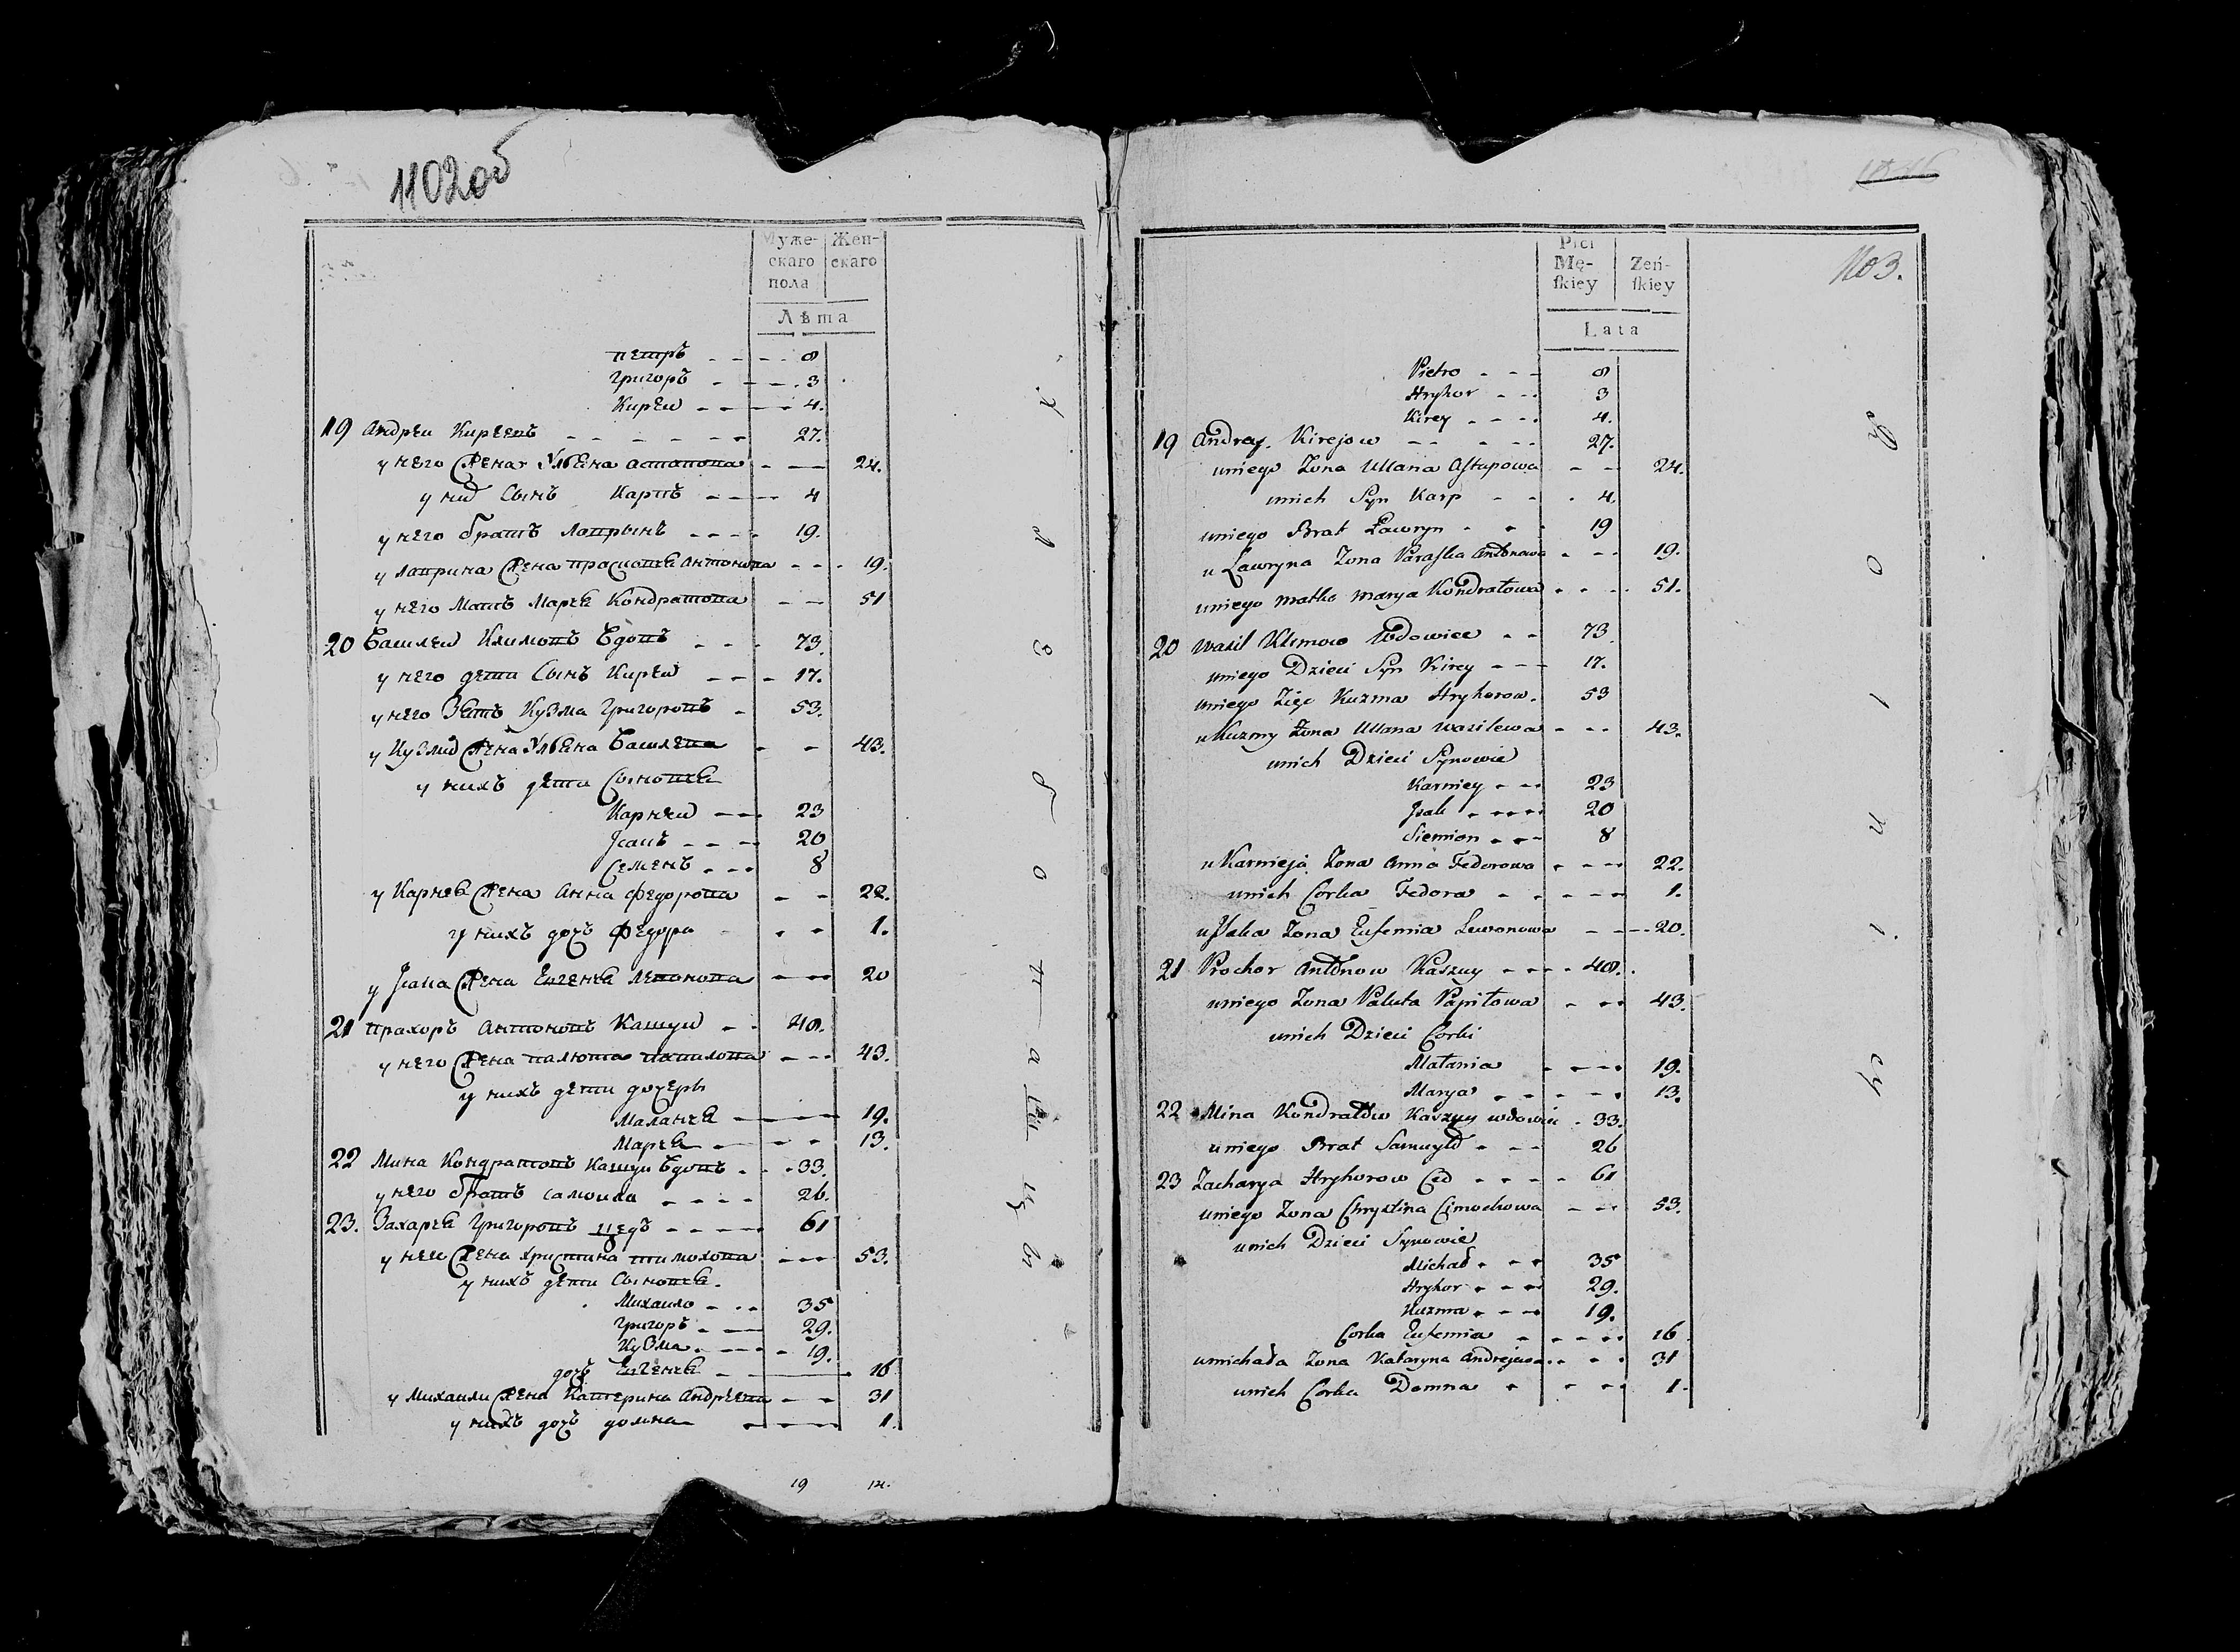 1102об
Муже- Жен-
скаго скаго
пола
Лѣта
петръ 8
Григоръ 3
Кирѣи 4.
19 Андрѣи Кирѣевъ 27.
у него жена Улѣяна Астапова 24.
у них Сынъ Карпъ 4
у него братъ Лаврынъ 19.
у Лаврина жена прасковѣя Антонова 19.
у него Мать Марѣя Кондратова 51
20 Василеи Климовъ вдовъ 73.
у него дети Сынъ Кирѣи 17.
у него Зять Кузма Григоровъ 53.
у Кузмы жена Улѣяна Василева 43.
у нихъ дети Сыновѣя
Карнѣи 23
Исакъ 20
Семенъ 8
у Карнея жена Анна Федорова 22.
у нихъ дочь Федора 1.
у Исака жена Евгенѣя Левонова 20
21 Прахоръ Антоновъ Кашуи 48.
у него жена палюта папилова 43.
у нихъ дети дочеры
Маланѣя 19.
Марѣя 13.
22 Мина Кондратовъ Кашуи вдовъ 33.
у него братъ Самоила 26.
23. Захарѣя Григоровъ Цедъ 61
у нее жена христина тимохова 53.
у нихъ дети Сыновѣя.
Михаило 35
Григоръ 29.
Кузма 19.
дочь Евгенѣя 16
у Михаилы жена Катерина Андрѣева 31
у нихъ дочь домна 1.
19 14.
1103.
Płci
Mę- Zeń-
ſkiey ſkiey
Lata
Pietro 8
Hryhor 3
Kirey 4.
19 Andrey Kirejow 27.
uniego Zona Ullana Astapowa 24.
unich Syn Karp 4.
uniego Brat Ławryn 19
u Ławryna Zona Paraska Antonowa 19.
uniego Matka Marya Kondratowa 51.
20 Wasil Klimow Wdowiec 73
uniego Dzieci Syn Kirey 17.
uniego Zięć Kuzma Hryhorow. 53
u Kuzmy Zona Ullana Wasilewa 43.
unich Dzieci Synowie
Karniey 23
Jsak 20
Siemion 8
u Karnieja Zona Anna Fedorowa 22.
unich Corka Fedora 1.
u Jsaka Zona Eufemia Lewonowa 20.
21 Prochor Antonow Kaszuy 48.
uniego Zona Paluta Papiłowa 43.
unich Dzieci Corki
Matania 19.
Marya 13.
22 Mina Kondratow Kaszuy wdowiec 33.
uniego Brat Samuyło 26
23 Zacharya Hryhorow Ced 61
uniego Zona Chrystina Cimochowa 53.
unich Dzieci Synowie
Michał 35
Hryhor 29.
Kuzma 19.
Corka Eufemia 16
u Michała Zona Kataryna Andrejewa 31
unich Corka Domna 1.